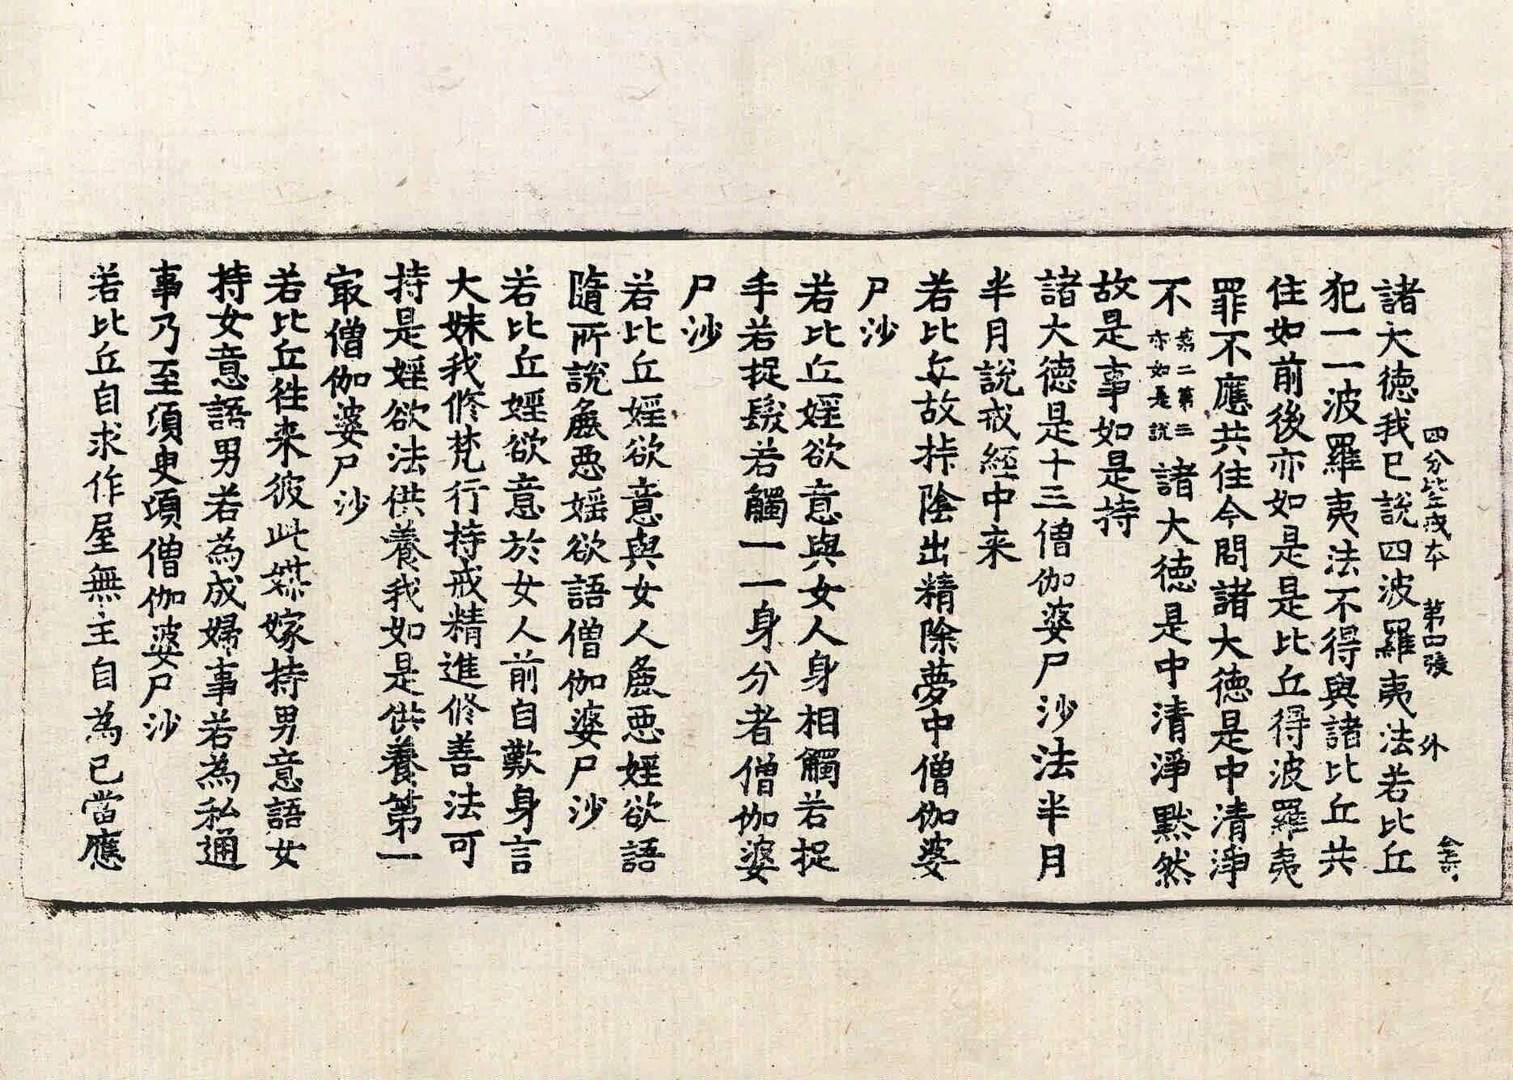 四分比丘戒本　第四張　外
諸大德我已說四波羅夷法若比丘
犯一一波羅夷法不得與諸比丘共
住如前後亦如是是比丘得波羅夷
罪不應共住今問諸大德是中清淨
不第二第三亦如是說諸大德是中清淨黙然
故是事如是持
諸大德是十三僧伽婆尸沙法半月
半月說戒經中来
若比丘故㧊陰出精除夢中僧伽婆
尸沙
若比丘婬欲意與女人身相觸若捉
手若捉髮若觸一一身分者僧伽婆
尸沙
若比丘婬欲意與女人麁惡婬欲語
隨所說麁惡婬欲語僧伽婆尸沙
若比丘婬欲意於女人前自歎身言
大妹我修梵行持戒精進修善法可
持是婬欲法供養我如是供養第一
㝡僧伽婆尸沙
若比丘徃来彼此媒嫁持男意語女
持女意語男若為成婦事若為私通
事乃至須臾頃僧伽婆尸沙
若比丘自求作屋無主自為己當應